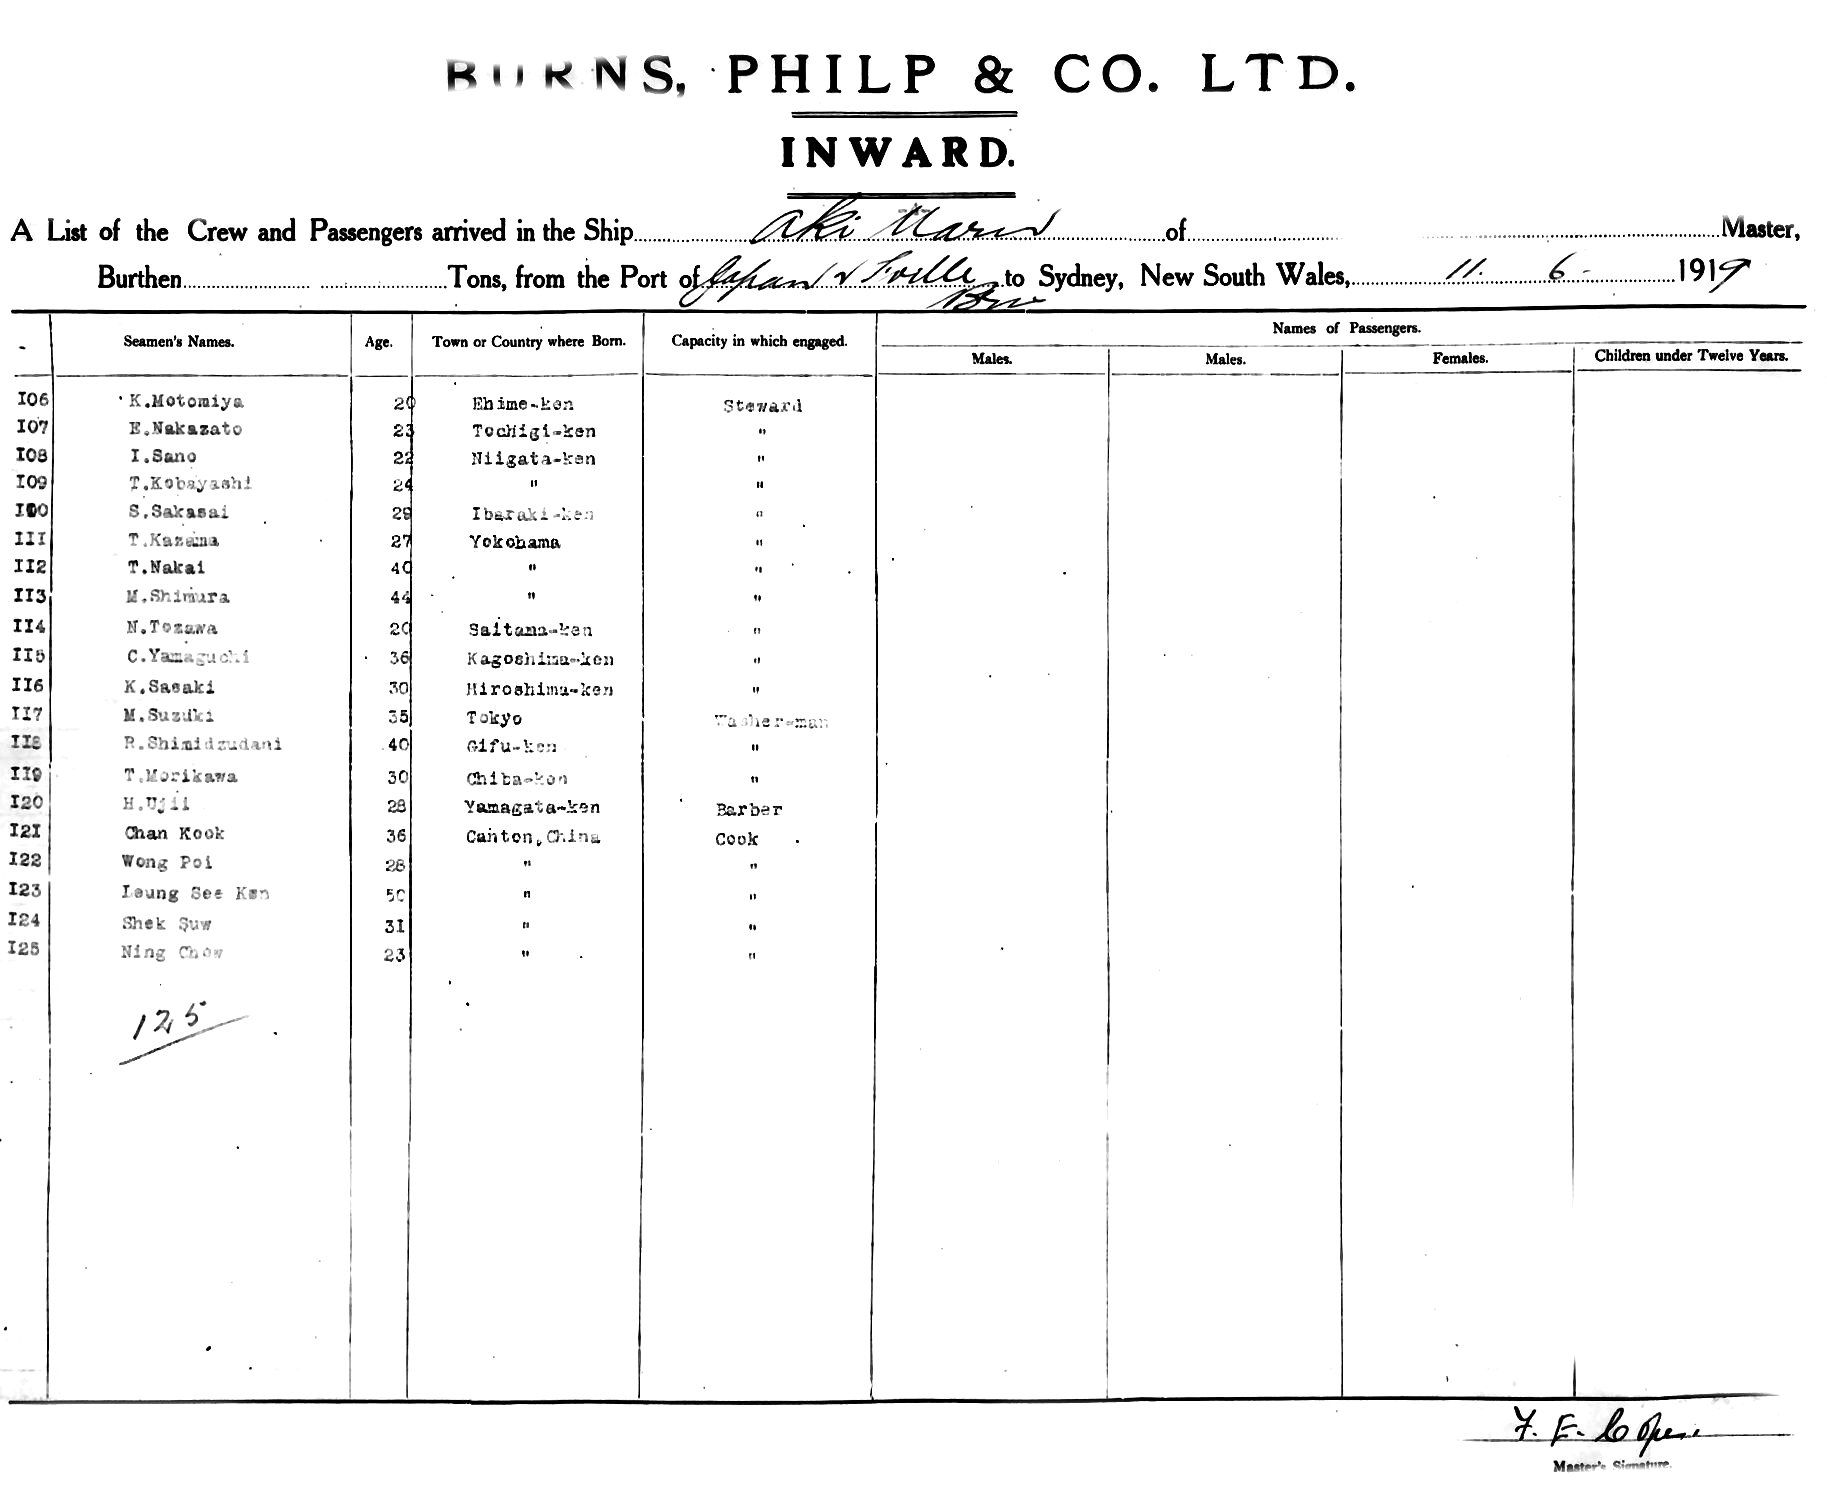 BURNS, PHILP & CO. LTD.
INWARD.
A List of the Crew and Passengers arrived in the Ship Aki Maru of Master,
Burthen Tons, from the Port of Japan & T'ville to Sydney, New South Wales, 11. 6- 1919
Seamen's Names. Age. Town or Country where Born. Capacity in which engaged. Names of Passengers.
Males. Males. Females. Children under Twelve Years.
I06 K.Motomiya 20 Ehime-ken Steward
I07 E.Nakazato 23 Tochigi-ken "
I08 I.Sano 22 Niigata-ken "
I09 T.Kobayashi 24 " "
S.Sakasai 29 Ibaraki-ken "
III T.Kazama 27 Yokohama "
II2 T.Nakai 40 " "
II3 M.Shimura 44 " "
II4 N.Tozawa 20 Saitama-ken "
II5 C.Yamaguchi 36 Kagoshima-ken "
II6 K.Sasaki 30 Hiroshima-ken "
II7 M.Suzuki 35 Tokyo Washer-man
II8 R.Shimidzudani 40 Gifu-ken "
II9 T.Morikawa 30 Chiba-ken "
I20 H.Ujii 28 Yamagata-ken Barber
I2I Chan Kook 36 Canton,China Cook
I22 Wong Poi 28 " "
I23 Leung See Ken 50 " "
I24 Shek Suw 3I " "
I25 Ning Chow 23 " "
125
F. E.
Master's Signature.